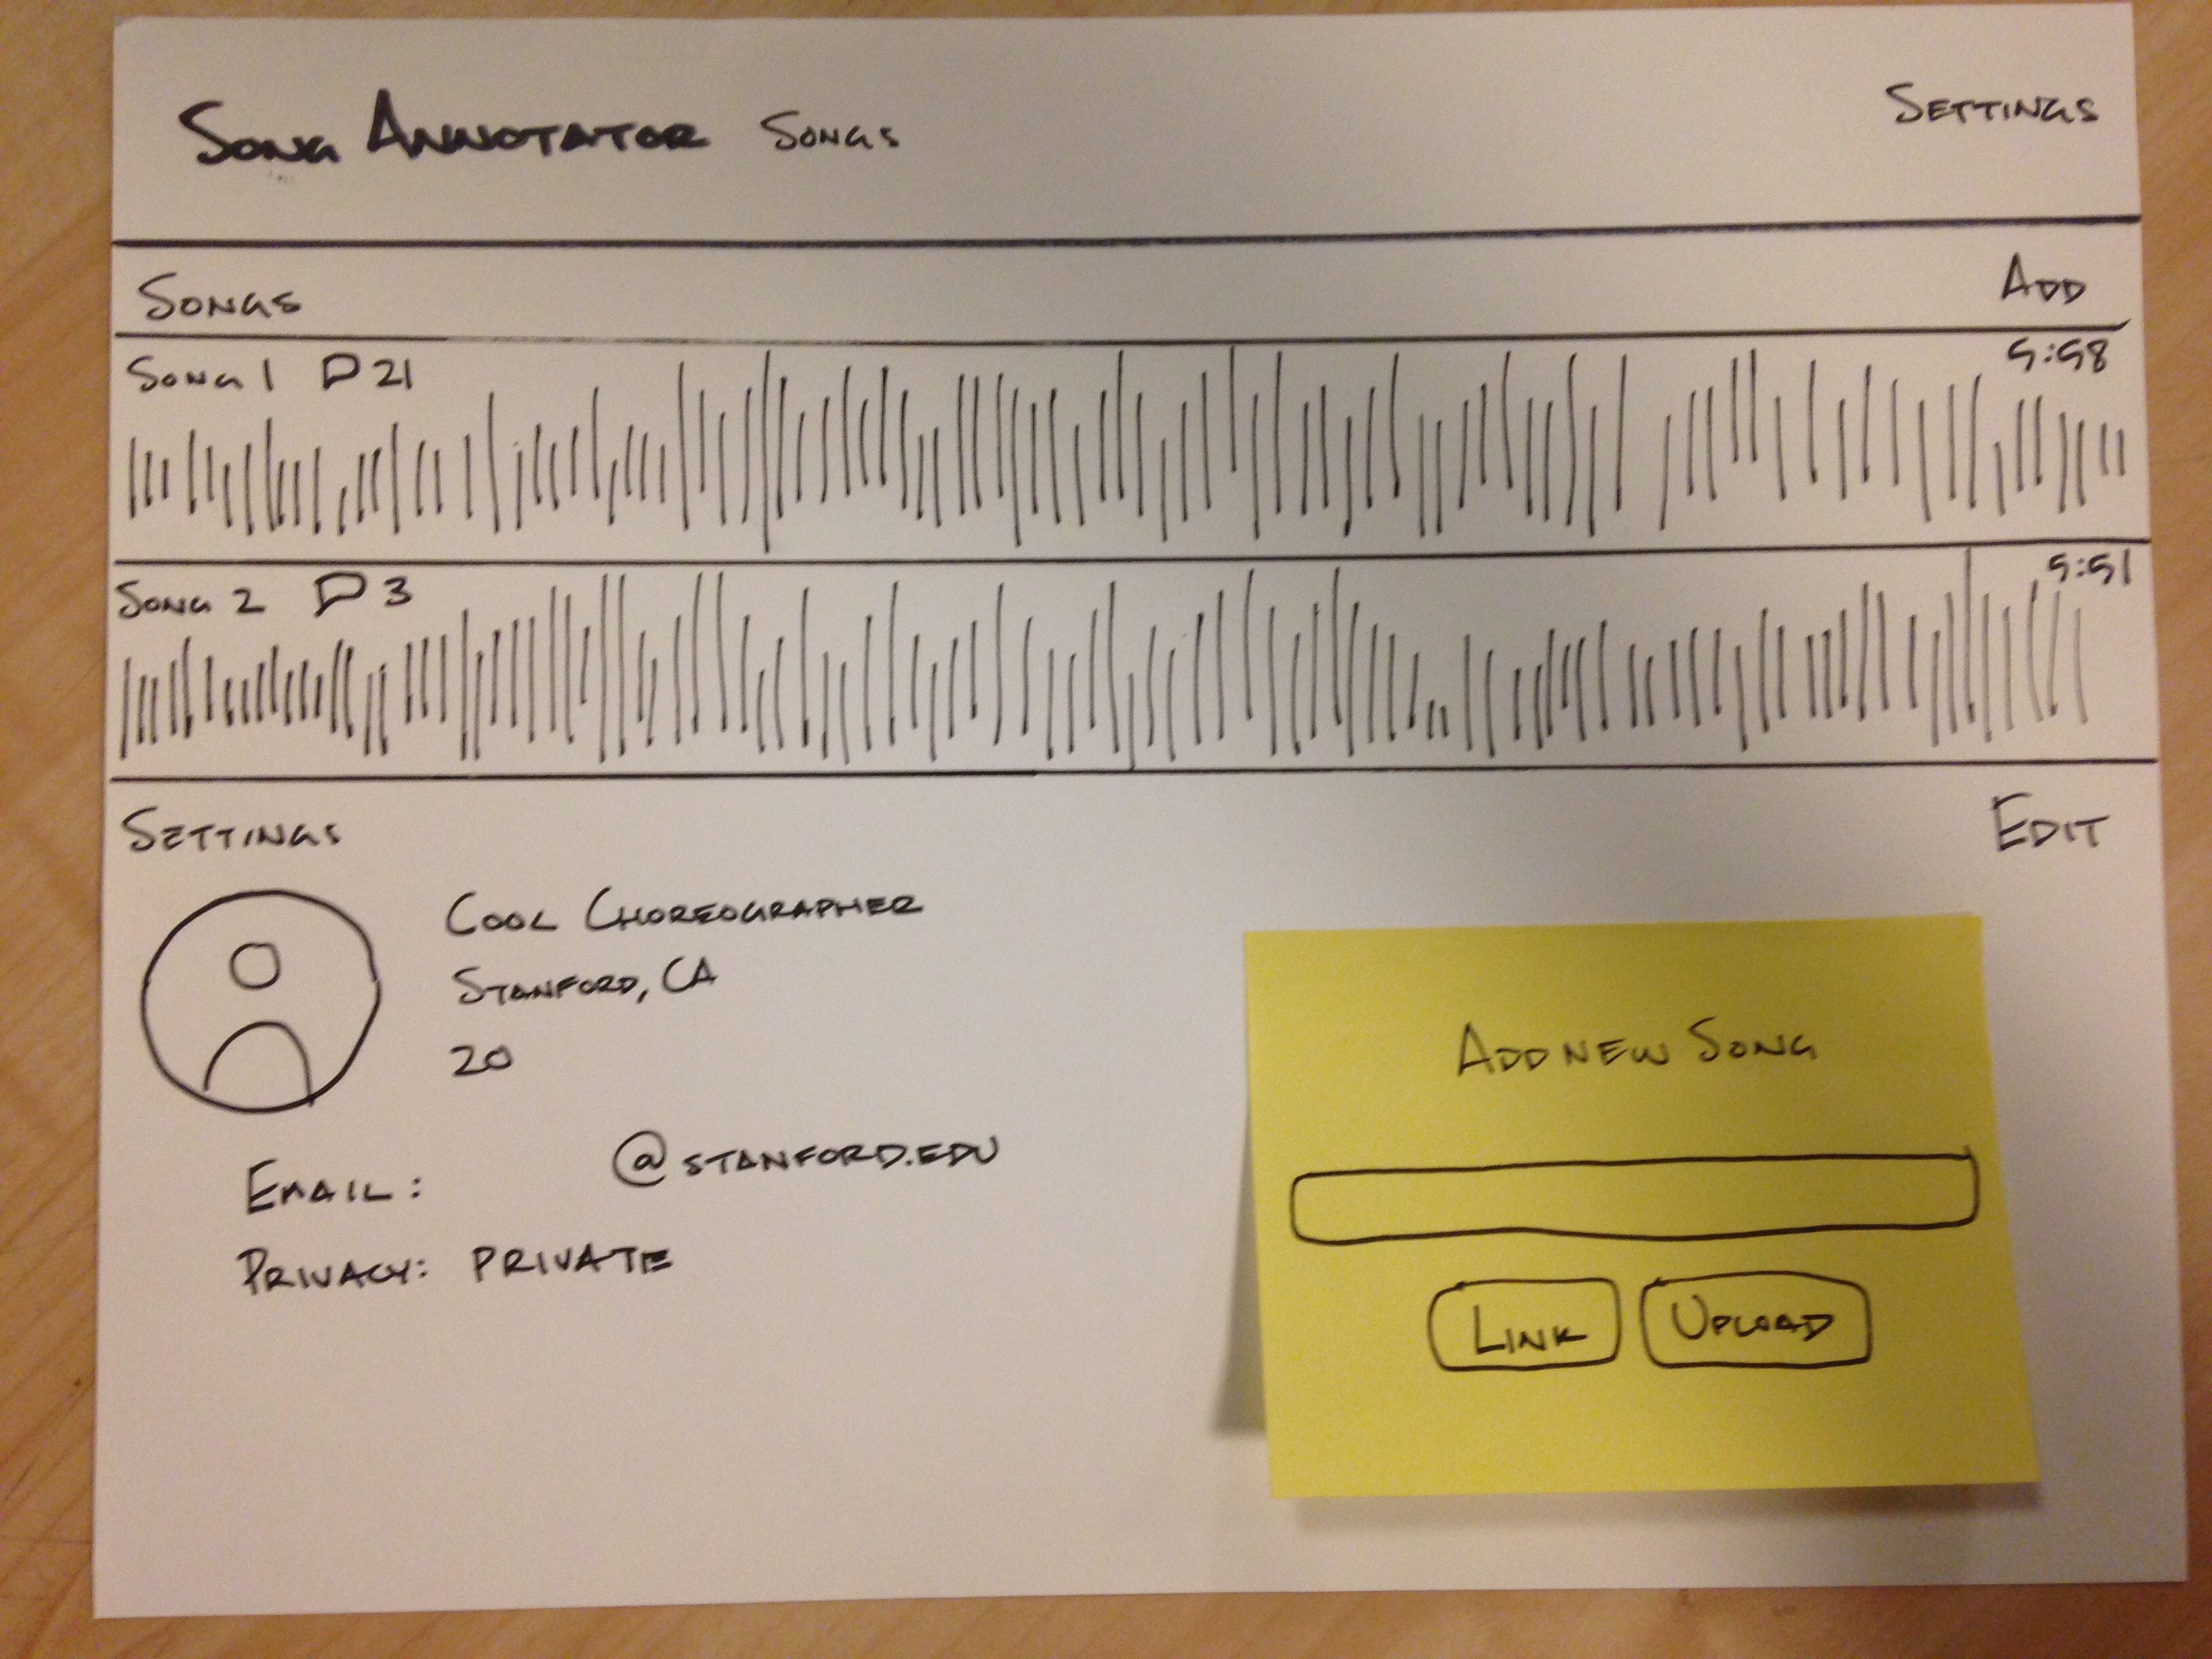 SONG ANNOTATOR SONGS SETTINGS
SONGS ADD
SONG 1 21 5:58
SONG 2 3 5:51
SETTINGS EDIT
COOL CHOREOGRAPHER
STANFORD, CA
20
EMAIL: @STANFORD.EDU
PRIVACY: PRIVATE
ADD NEW SONG
LINK UPLOAD